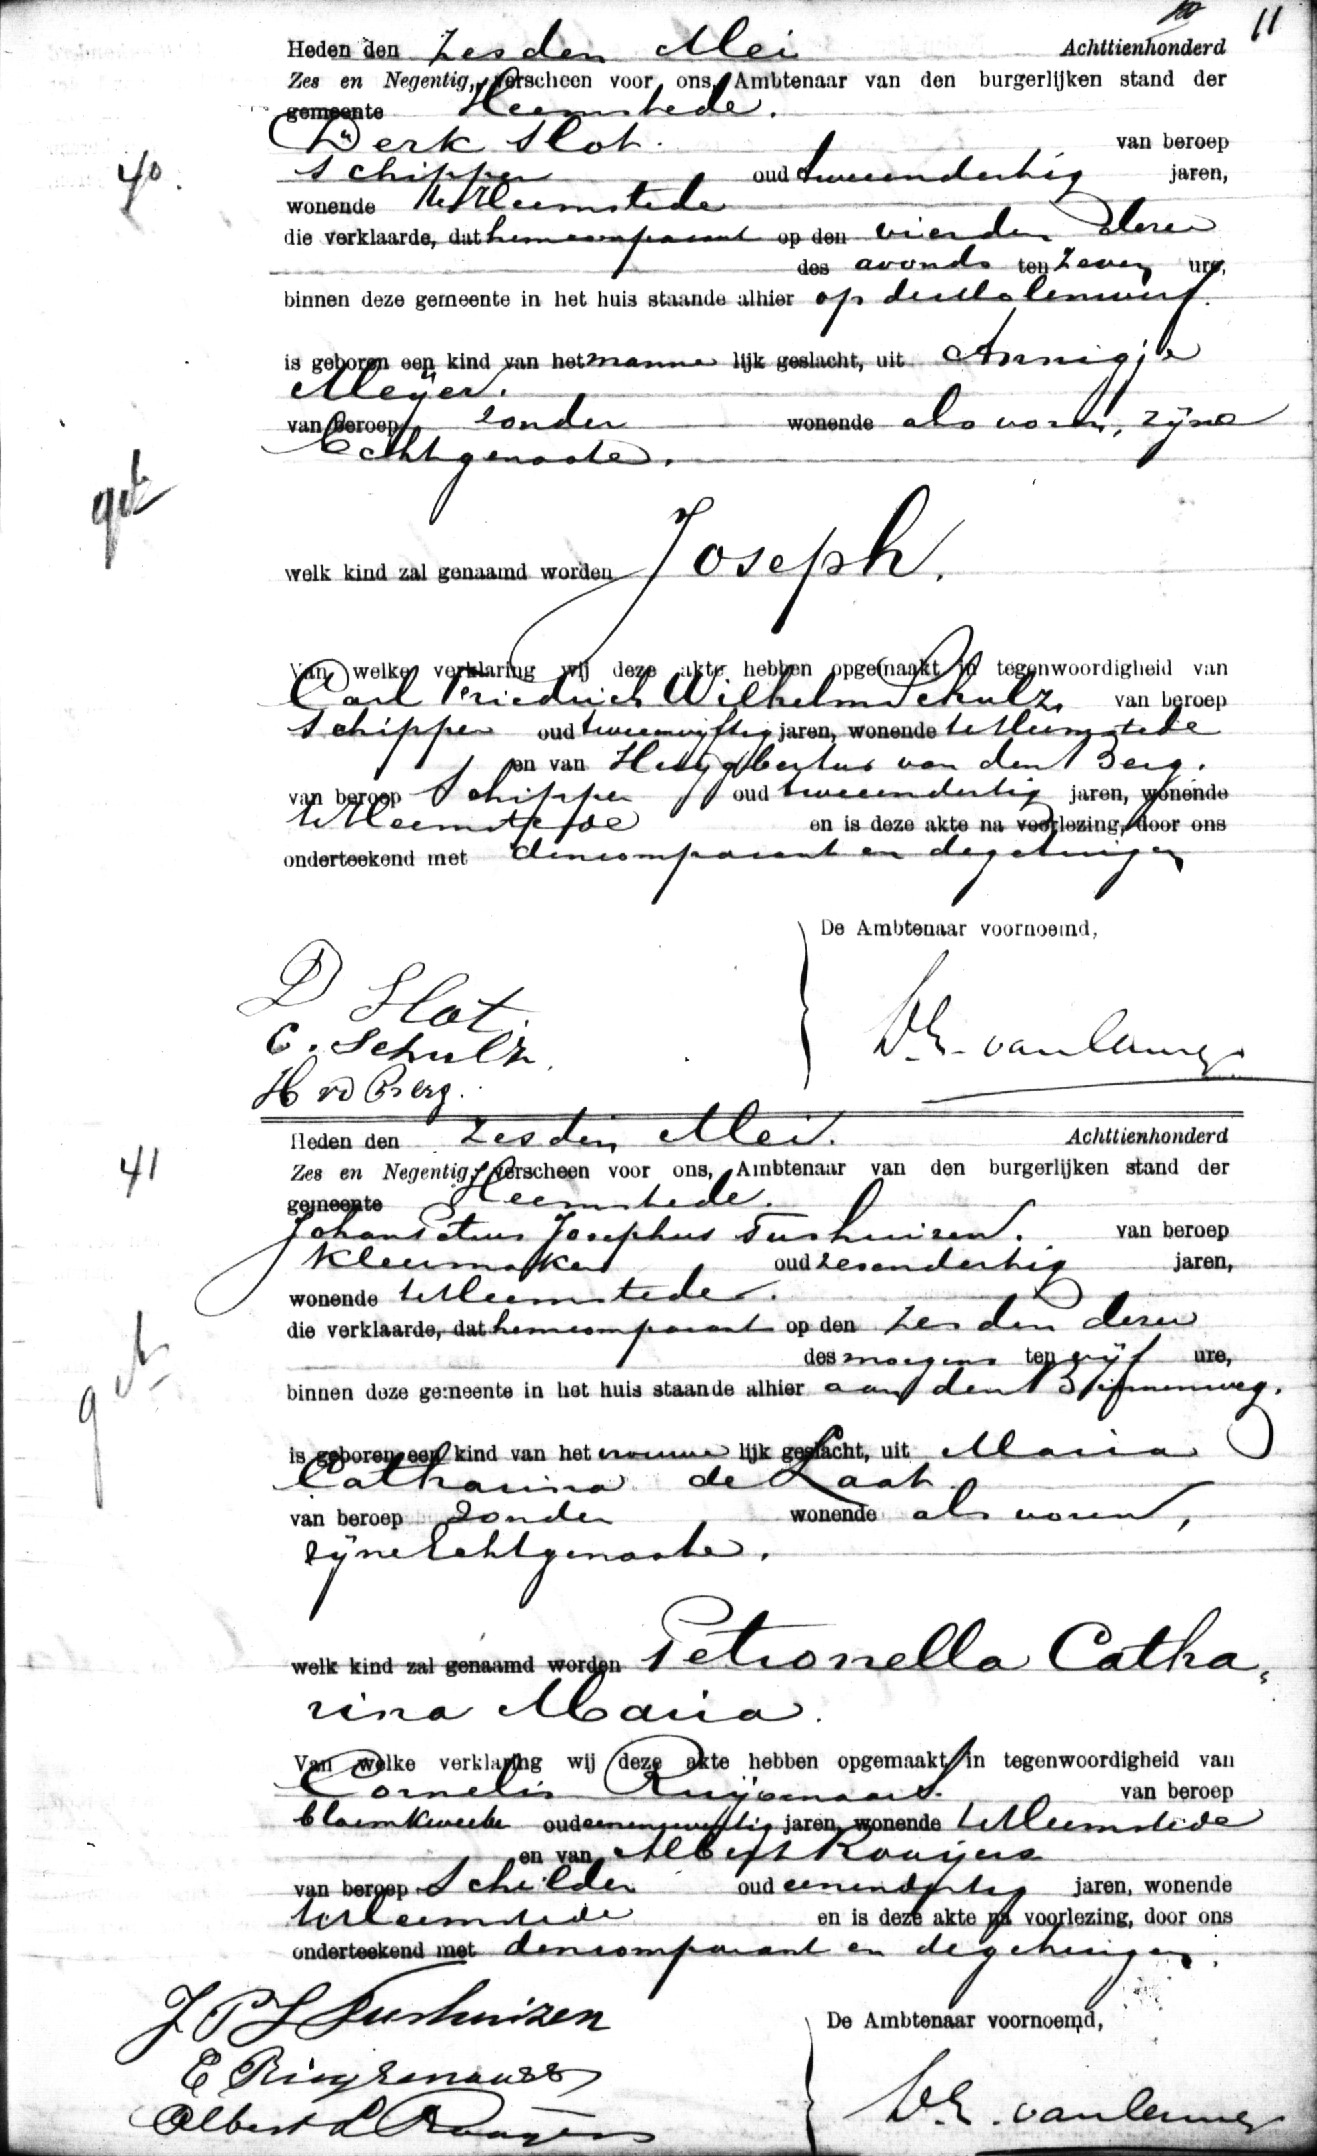 11
Heden den zesden Mei Achttienhonderd
Zes en Negentig, verscheen voor ons, Ambtenaar van den burgerlijken stand der
gemeente Heemstede.
40. Derk Slot. van beroep
schipper oud tweeendertig jaren,
wonende te Heemstede
die verklaarde, dat hem comparant op den vierden dezer
des avonds ten zeven ure,
binnen deze gemeente in het huis staande alhier op de Molenwerf.
is geboren een kind van het manne lijk geslacht, uit Annigje
Meijer.
van beroep zonder wonende als voren, zijne
Echtgenoote.
get
welk kind zal genaamd worden Joseph.
Van welke verklaring wij deze akte hebben opgemaakt in tegenwoordigheid van
Carl Friedrich Wilhelm Schulz, van beroep
schipper oud tweeenvijftig jaren, wonende te Heemstede
en van Huijgbertus van den Berg.
van beroep Schipper oud tweeendertig jaren, wonende
te Heemstede en is deze akte na voorlezing, door ons
onderteekend met den comparant en de getuigen
De Ambtenaar voornoemd,
D Slot.
C. Schulz.
H vd Berg.
41 Heden den zesden Mei. Achttienhonderd
Zes en Negentig, verscheen voor ons, Ambtenaar van den burgerlijken stand der
gemeente Heemstede.
Johan Petrus Josephus Tushuizen. van beroep
kleermaker oud zesendertig jaren,
wonende te Heemstede.
die verklaarde, dat hem comparant op den zesden dezer
des morgens ten vijf ure,
binnen deze gemeente in het huis staande alhier aan den Binnenweg.
get
is geboren een kind van het vrouwe lijk geslacht, uit Maria
Catharina de Laat.
van beroep zonder wonende als voren,
zijne Echtgenoote.
welk kind zal genaamd worden Petronella Catha,
rina Maria.
Van welke verklaring wij deze akte hebben opgemaakt in tegenwoordigheid van
Cornelis Ruijsenaars. van beroep
bloemkweeker oud jaren, wonende te Heemstede
en van Albert Rooijers
van beroep Schilder oud eenendertig jaren, wonende
te Heemstede en is deze akte na voorlezing, door ons
onderteekend met den comparant en de getuigen.
J P J Tushuizen De Ambtenaar voornoemd,
C Ruijsenaars
Albert Rooijers